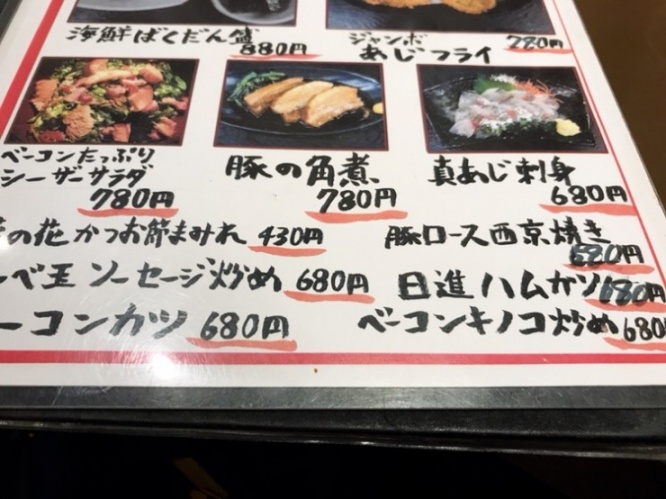 海鮮ばくだん盛
880円
ジャンボ
あじフライ
780円
ベーコンたっぷり
シーザーサラダ
780円
豚の角煮
780円
真あじ刺身
680円
の花かつお節まみれ 430円
豚ロース西京焼き
680円
ーベ玉ソーセージ炒め 680円
日進ハムカツ 680円
ーコンカツ 680円
ベーコンキノコ炒め 680